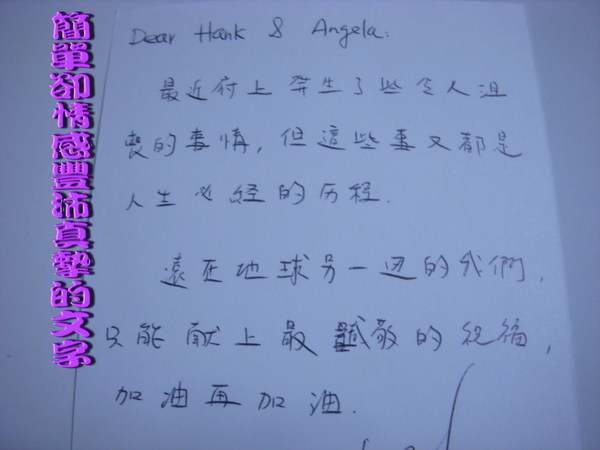 簡單卻情感豐沛真摯的文字
Dear Hank & Angela:
最近府上發生了些令人沮
喪的事情,但這些事又都是
人生必经的历程.
遠在地球另一边的我們,
只能献上最 敬的祝福,
加油再加油.